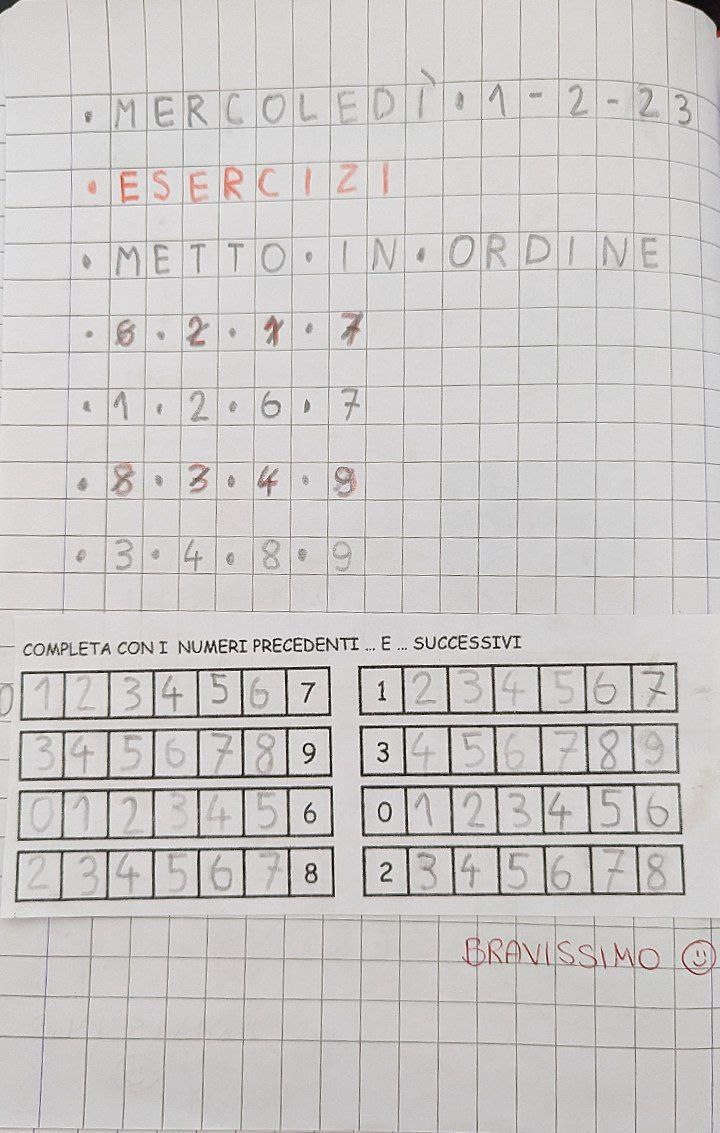 • MERCOLEDÌ • 1 - 2 - 23
• ESERCIZI
• METTO • IN • ORDINE
• 6 • 2 • 1 • 7
• 1 • 2 • 6 • 7
• 8 • 3 • 4 • 9
• 3 • 4 • 8 • 9
COMPLETA CON I NUMERI PRECEDENTI ... E ... SUCCESSIVI
0 1 2 3 4 5 6 7
1 2 3 4 5 6 7
3 4 5 6 7 8 9
3 4 5 6 7 8 9
0 1 2 3 4 5 6
0 1 2 3 4 5 6
2 3 4 5 6 7 8
2 3 4 5 6 7 8
BRAVISSIMO